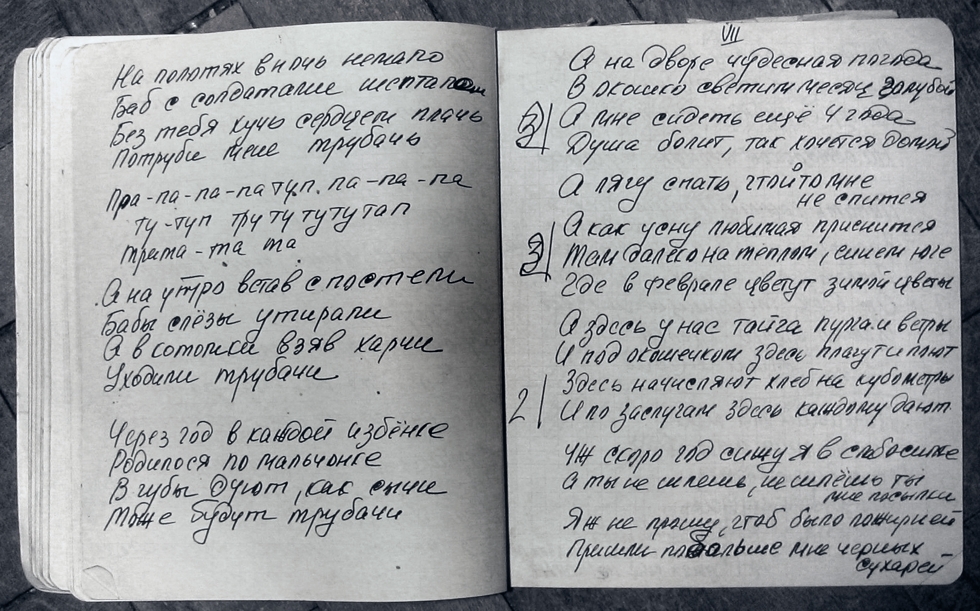 На полотях в ночь немало
Баб с солдатами шепталом
Без тебя хучь сердцем плачь
Потруби мене трубачь
Пра-па-па-па туп. па-па-па
ту-туп тру ту ту ту тап
трата-та та
А на утро встав с постели
Бабы слёзы утирали
А в котомки взяв харчи
Уходили трубачи
Через год в каждой избёнке
Родилося по мальчонке
В губы дуют, как сычи
Тоже будут трубачи
VII
А на дворе чудесная погода
В окошко светит месяц голубой
3 А мне сидеть ещё 4 года
Душа болит, так хочется домой
А лягу спать, чтойто мне
не спится
А как усну любимая приснится
3 Там далеко на тёплом, синем юге
Где в феврале цветут зимой цветы
А здесь у нас тайга пурга и ветры
И под окошечком здесь плачут и поют
Здесь начисляют хлеб на кубометры
2 И по заслугам здесь каждому дают
Уж скоро год сижу я в слабосилке
А ты не шлешь, не шлёшь ты
мне посылки
Я ж не прошу, чтоб было пожирней
Пришли побольше мне черных
сухарей